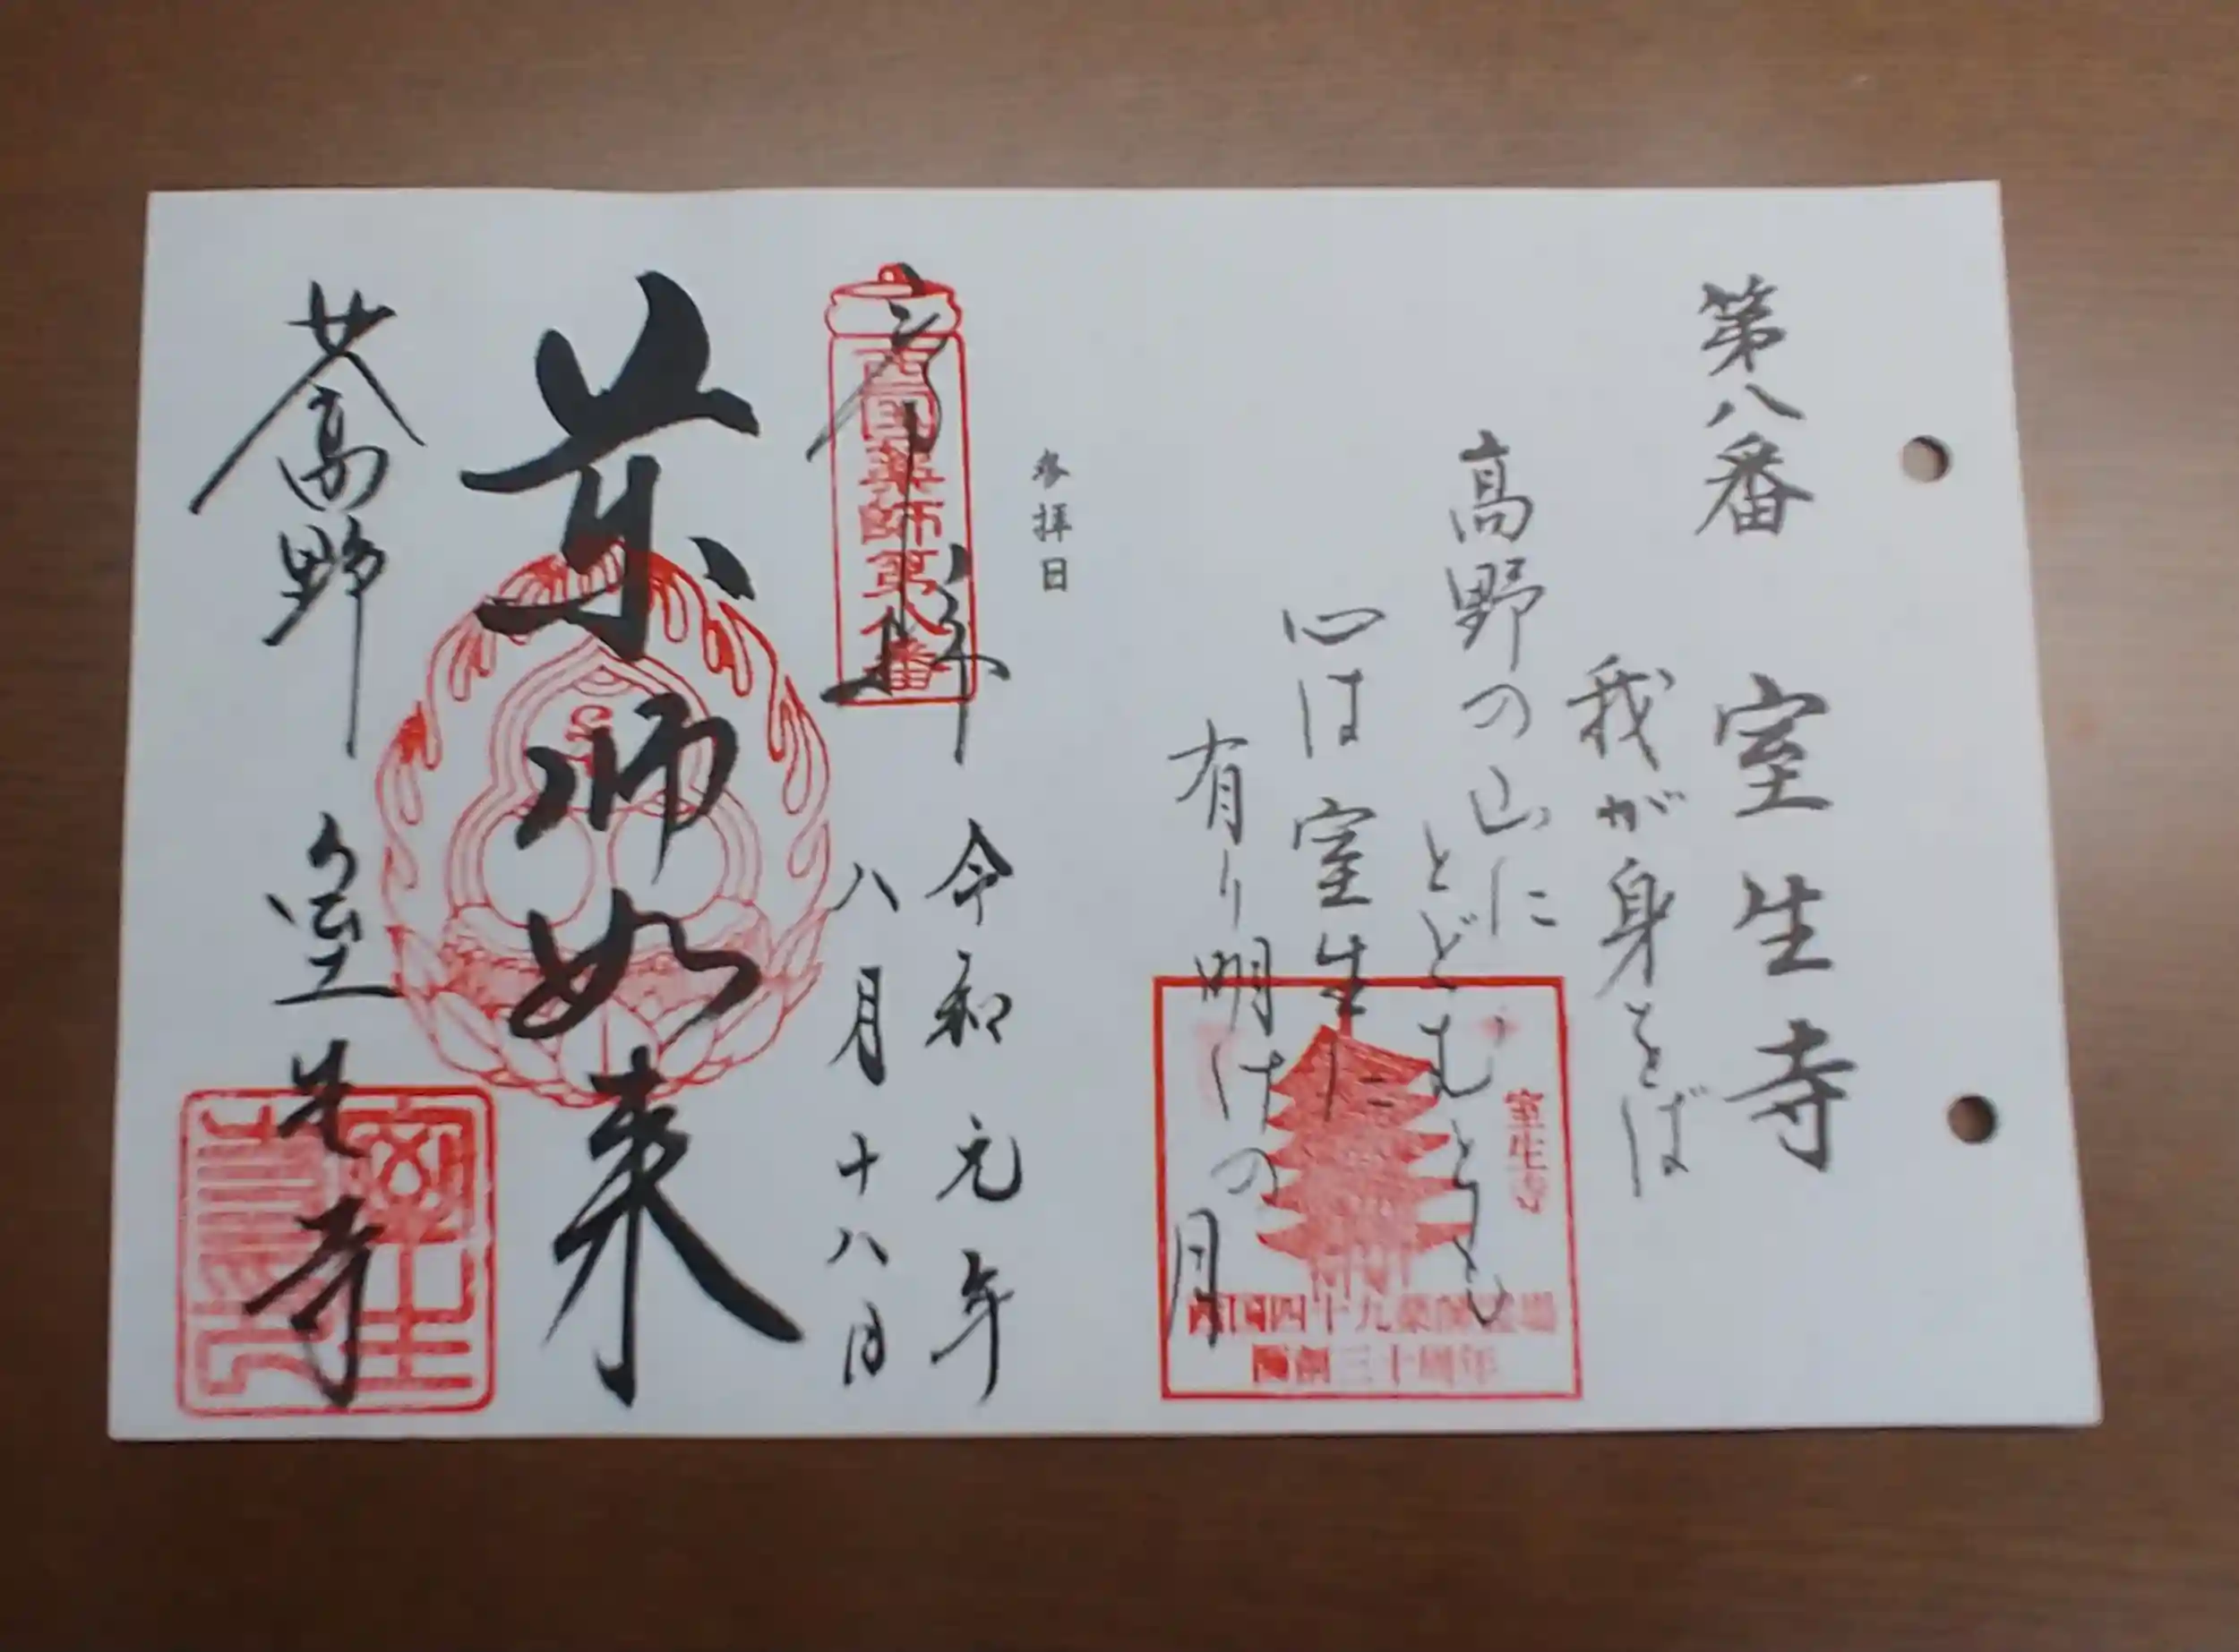 第八番 室生寺
我が身をば
高野の山に
とどむとも
心は室生に
有り明けの月
室生寺
西国四十九薬師霊場
開創三十周年
参拝日
奉拝
令和元年
八月十八日
西国薬師第八番
薬師如来
女人高野 室生寺